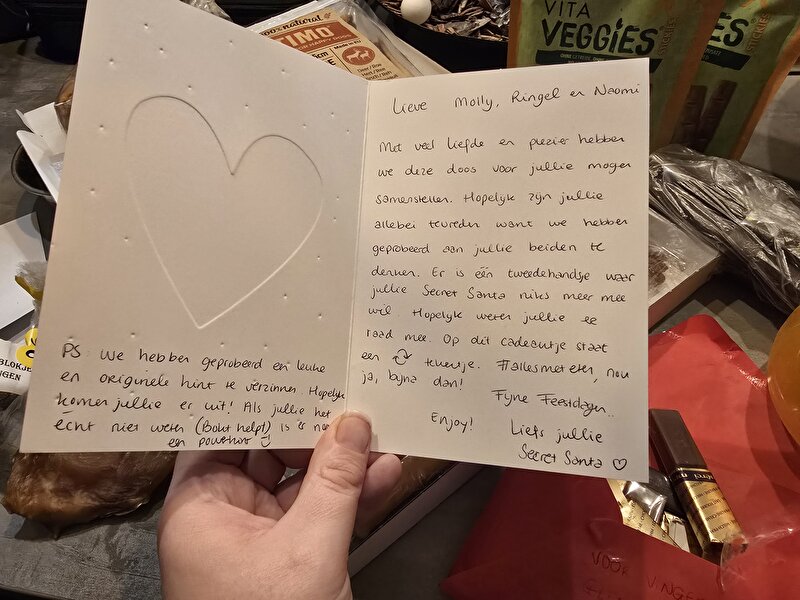 100% natural
IMO
HAPPY DOGS
Made in EU
VITA
VEGGIES
STICKIES
ES
Lieve Molly, Ringel en Naomi
Met veel liefde en plezier hebben
we deze doos voor jullie mogen
samenstellen. Hopelijk zijn jullie
allebei tevreden want we hebben
geprobeerd aan jullie beiden te
denken. Er is één tweedehandsje waar
jullie Secret Santa niks meer mee
wil. Hopelijk weten jullie er
raad mee. Op dit cadeautje staat
een tekentje. #allesmeteten, nou
ja, bijna dan!
Fijne Feestdagen..
Enjoy!
Liefs jullie
Secret Santa ♡
PS: We hebben geprobeerd en leuke
en originele hint te verzinnen. Hopelijk
komen jullie er uit! Als jullie het
écht niet weten (Bolt helpt) is er nog
een
BLOKJE
NGEN
VOOR